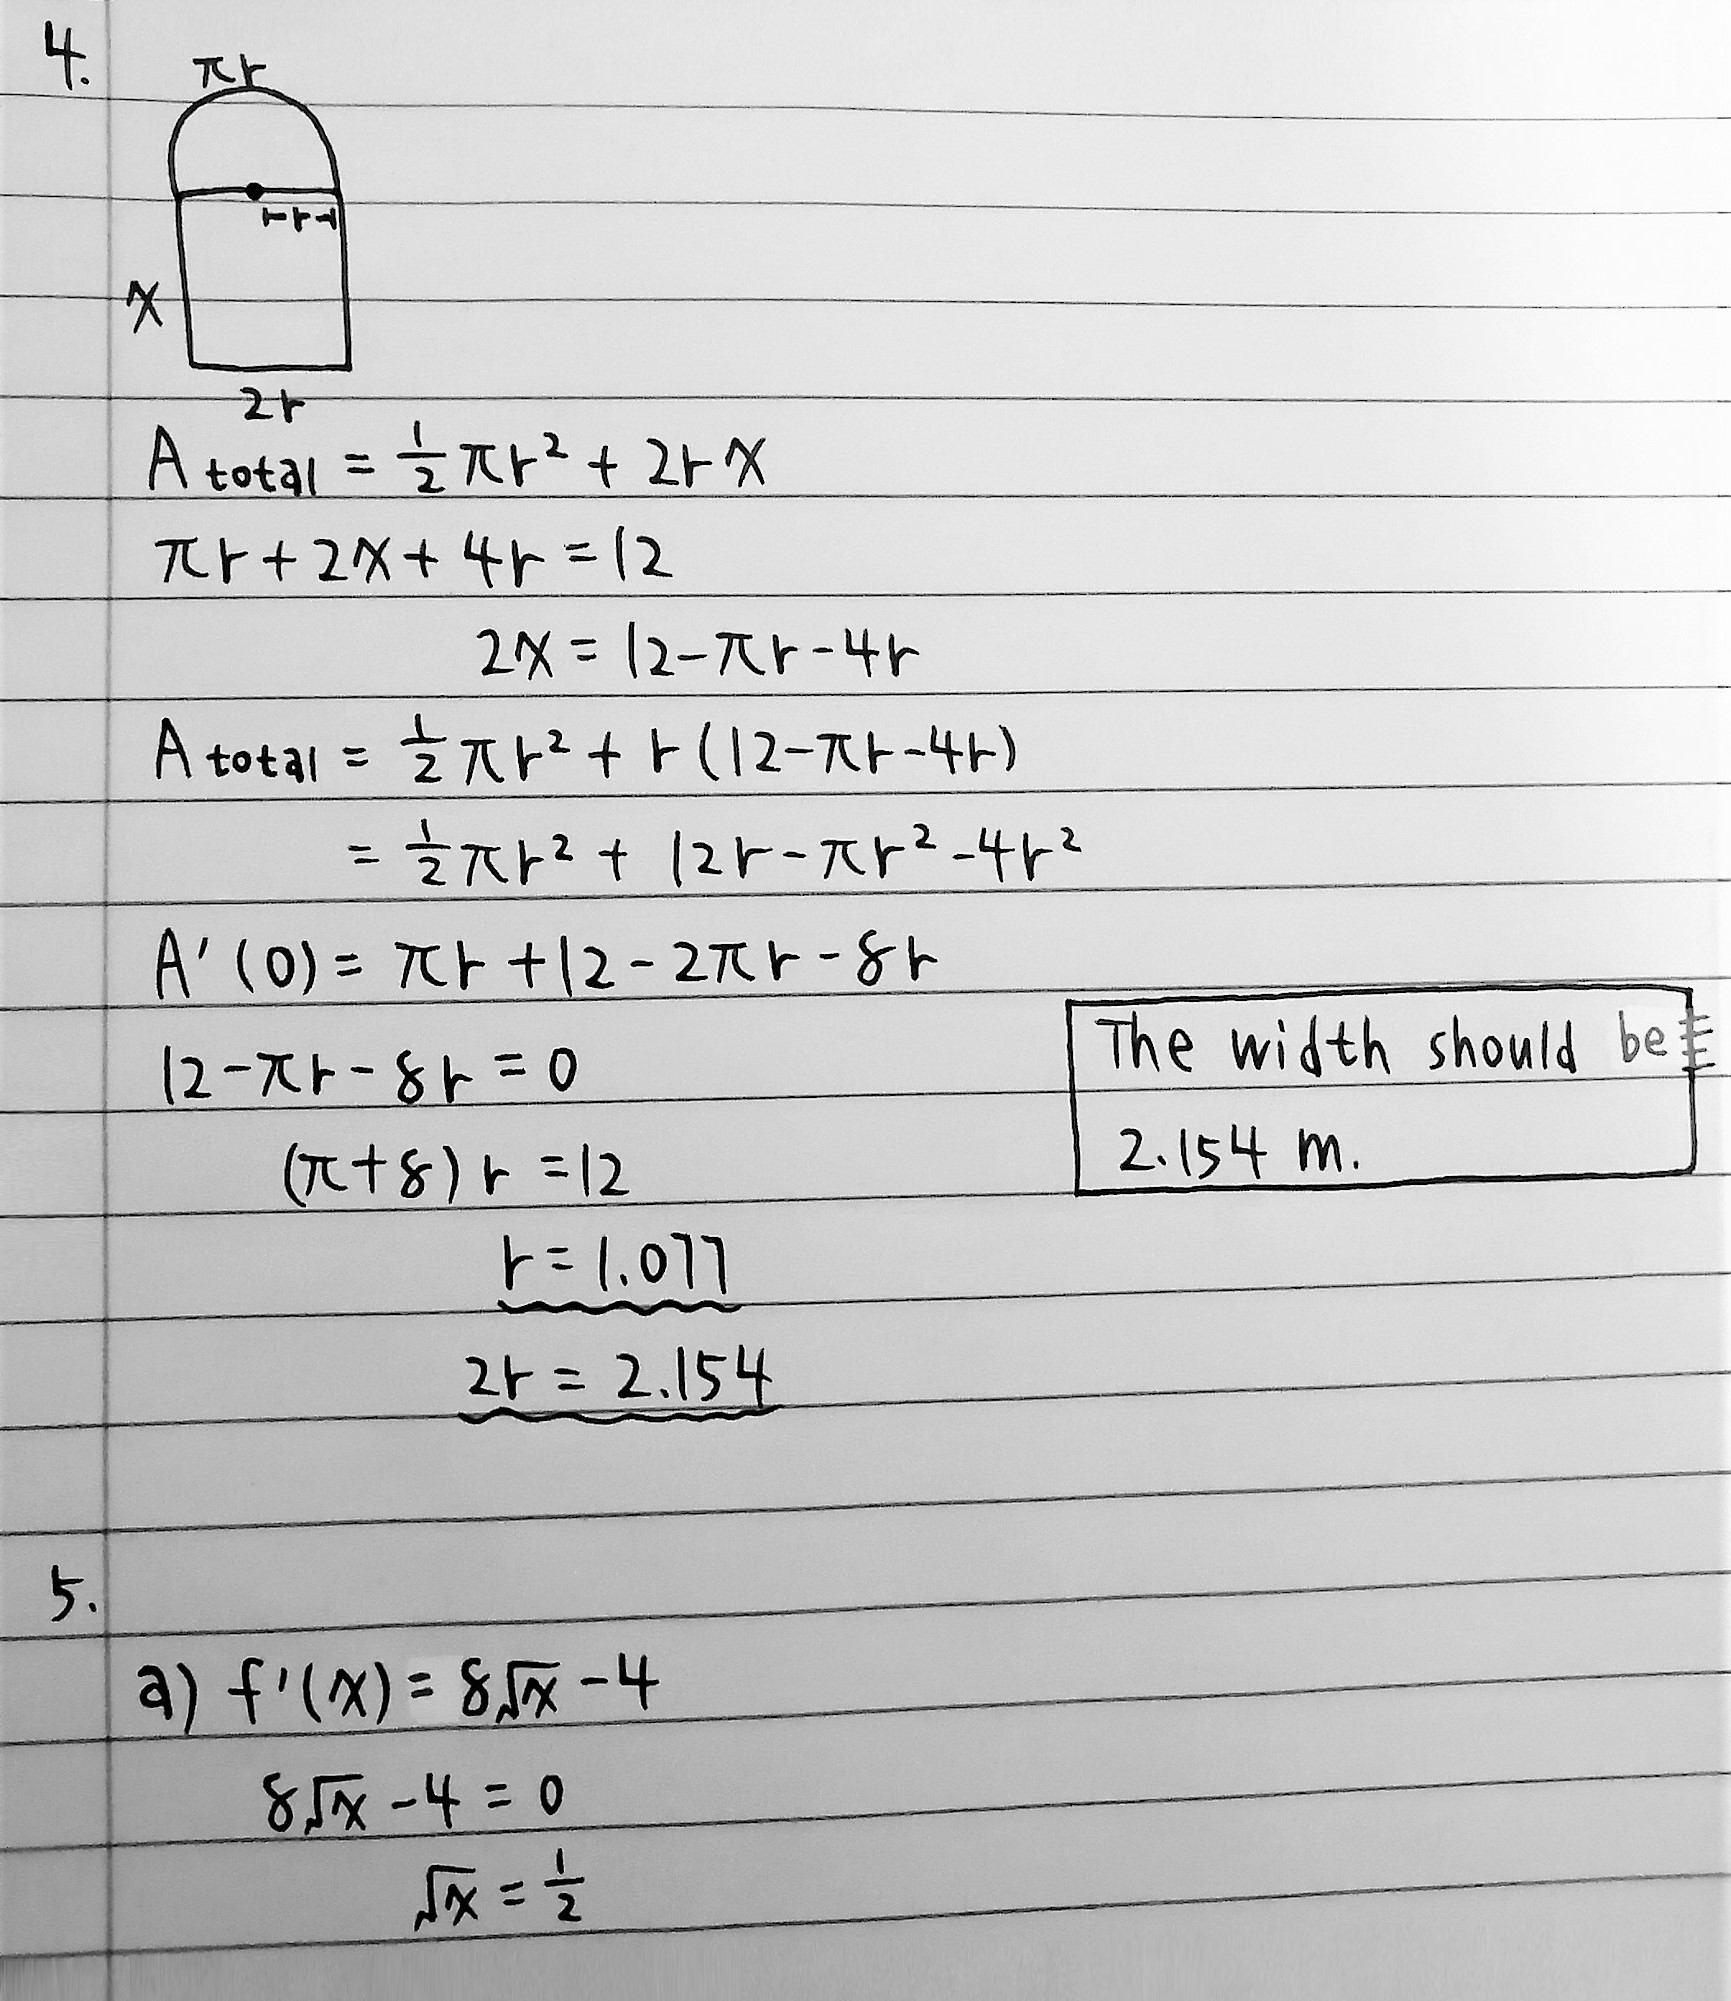 4.
πr
r
x
2r
A total = 1/2 πr² + 2rx
πr + 2x + 4r = 12
2x = 12 - πr - 4r
A total = 1/2 πr² + r(12 - πr - 4r)
= 1/2 πr² + 12r - πr² - 4r²
A'(0) = πr + 12 - 2πr - 8r
12 - πr - 8r = 0
(π + 8) r = 12
r = 1.077
2r = 2.154
The width should be
2.154 m.
5.
a) f'(x) = 8√x - 4
8√x - 4 = 0
√x = 1/2